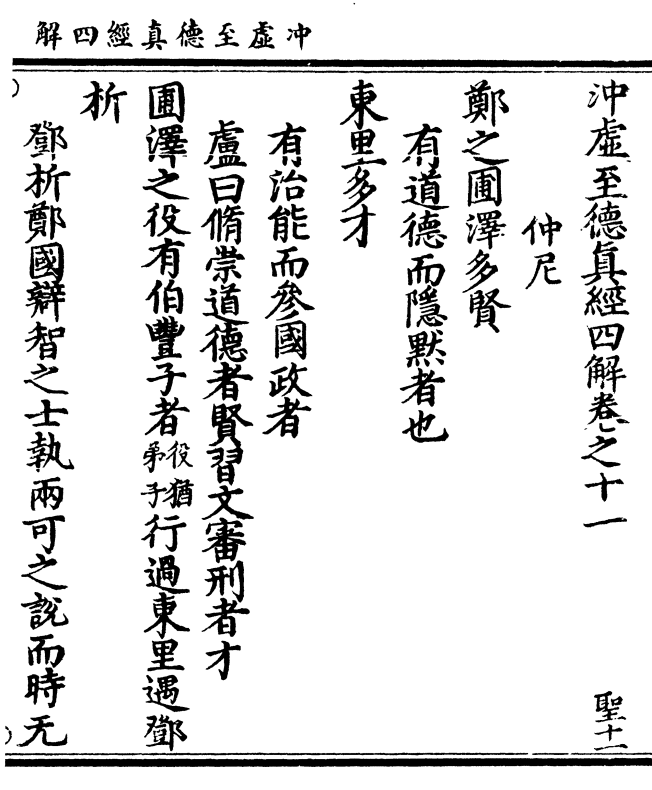 沖虛至德真經四解
沖虛至德真經四解卷之十一　聖十一
仲尼
鄭之圃澤多賢
有道德而隱默者也
東里多才
有治能而參國政者
盧曰脩崇道德者賢習文審刑者才
圃澤之役有伯豐子者役猶弟子行過東里遇鄧
析
鄧析鄭國辯智之士執兩可之說而時无